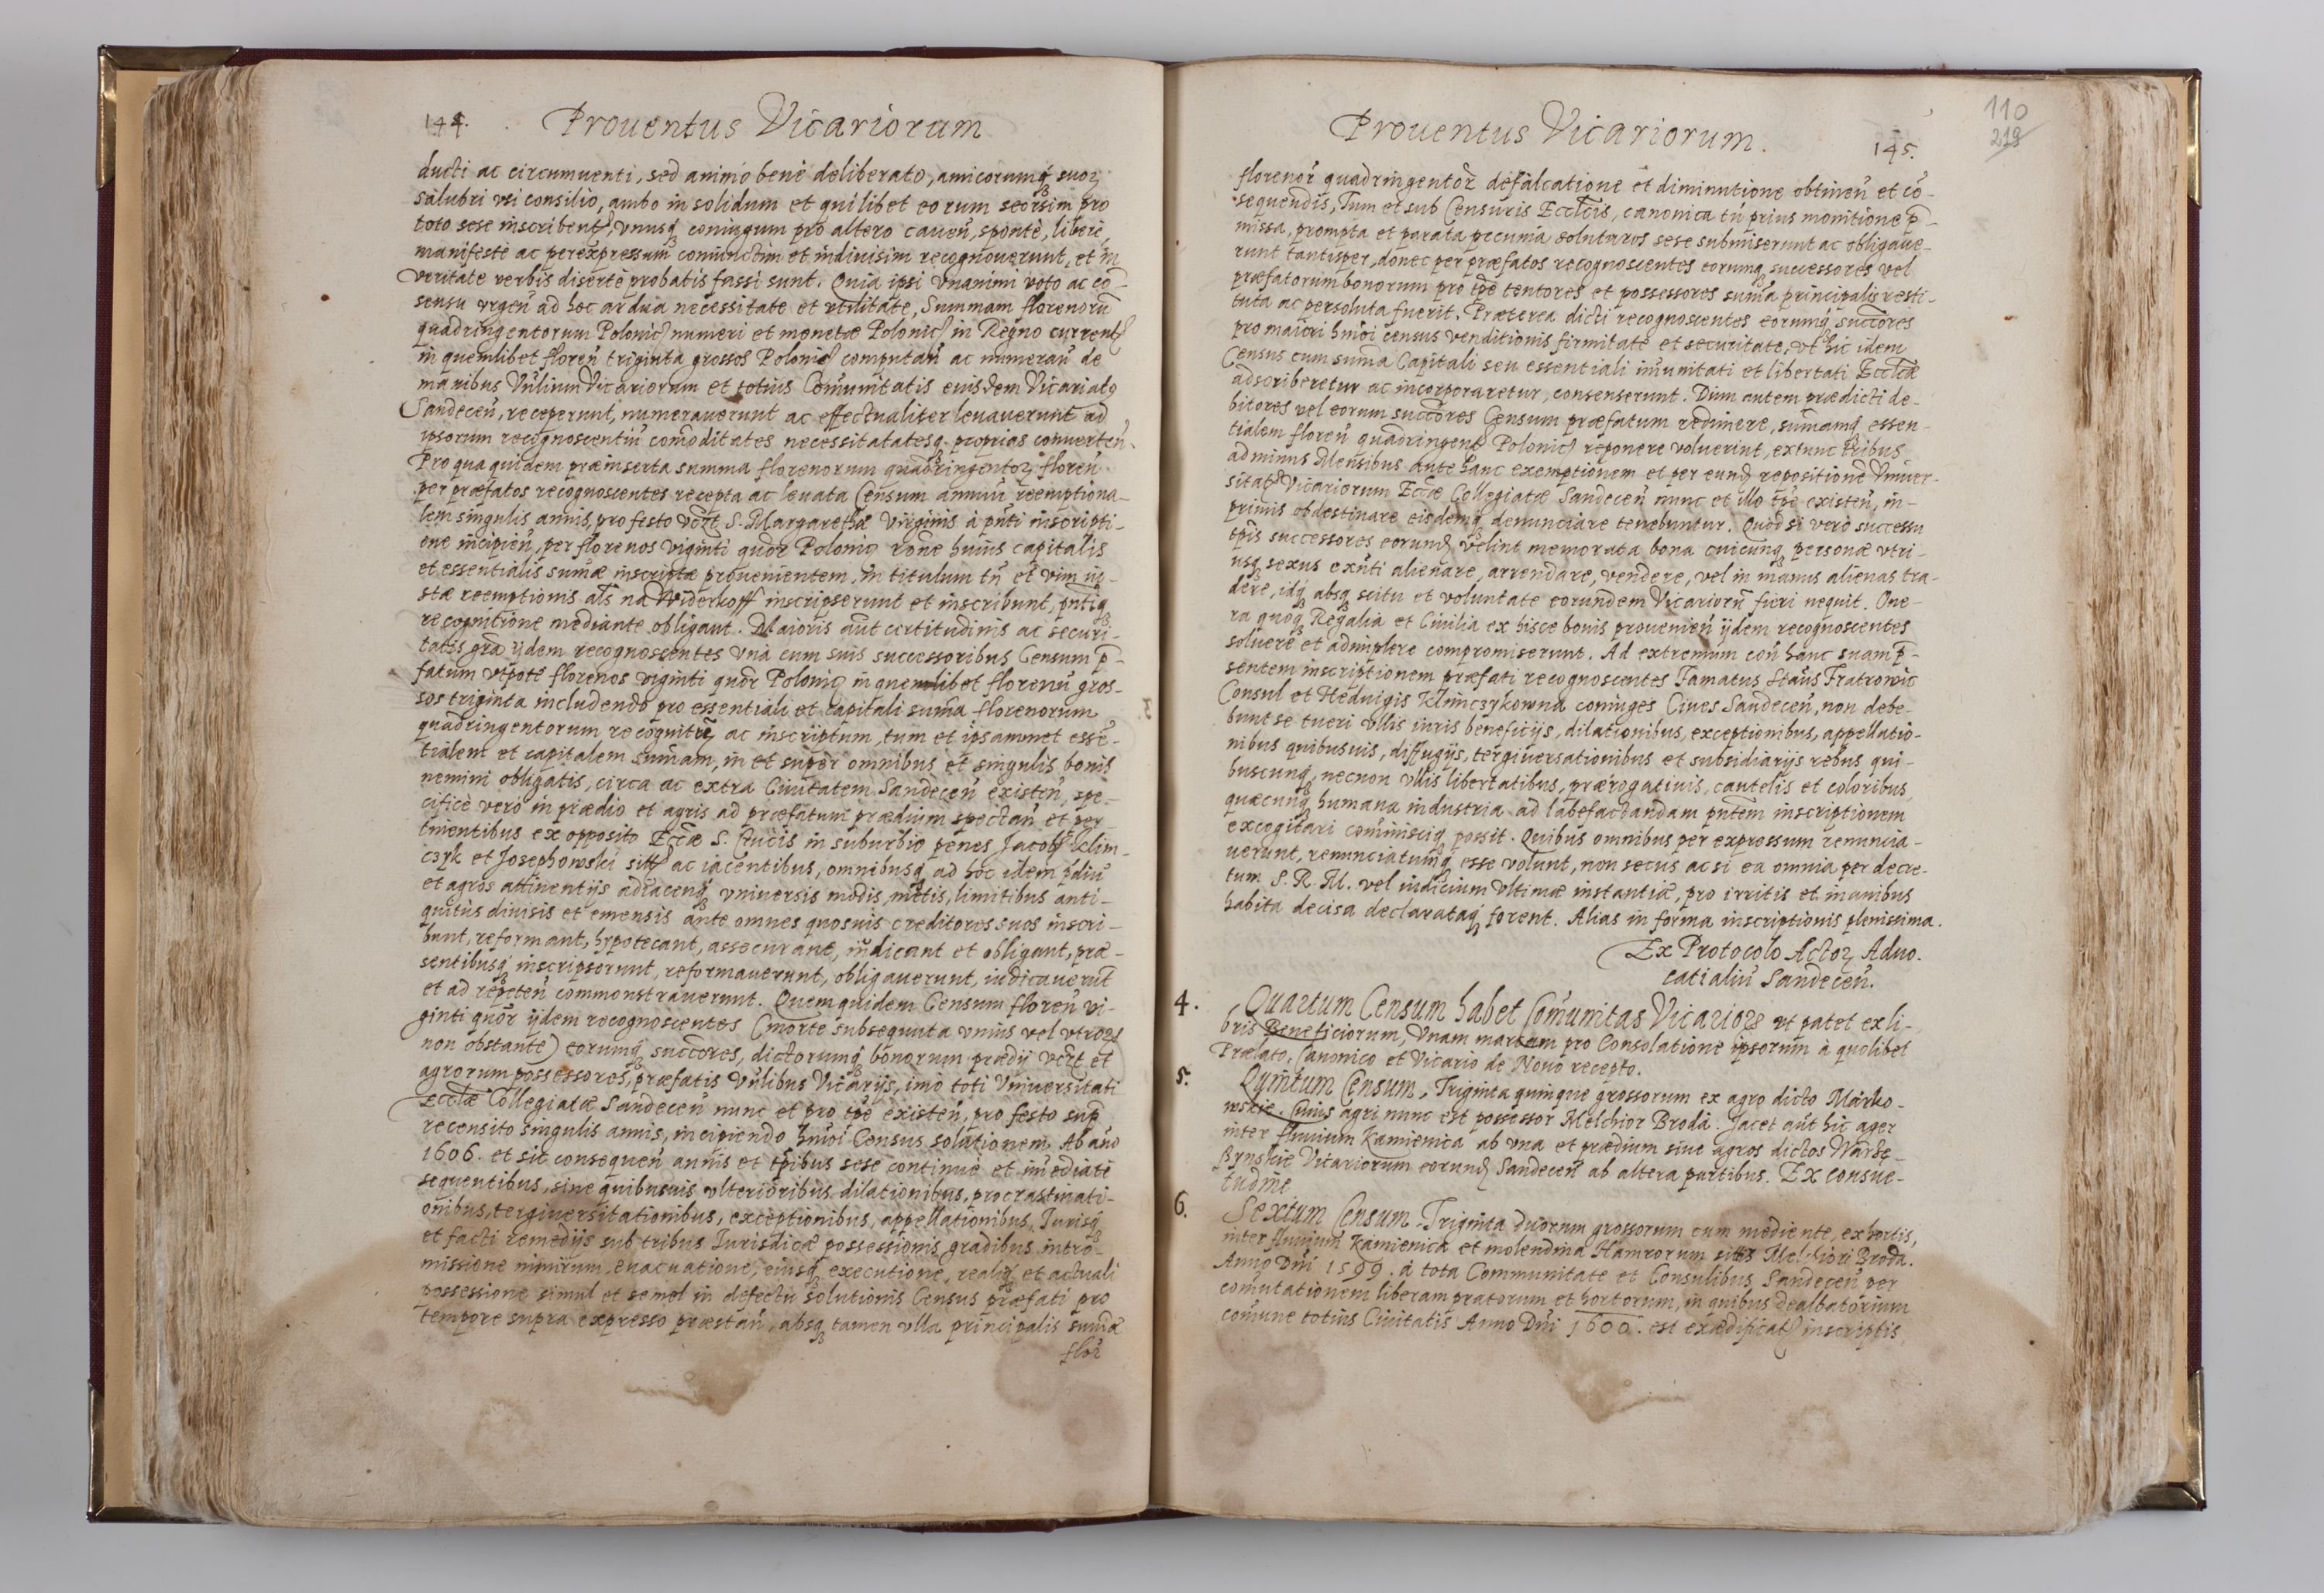 144. Prouentus Vicariorum
ducti ac circumuenti, sed animo bene deliberato, amicorumq suoꝝ
salubri vsi consilio, ambo in solidum et quilibet eorum seorsim pro
toto sese inscribentꝭ, vnusq coniugum pro altero cauen̄, sponte, libere,
manifeste ac per expressum coniunctim et indiuisim recognouerunt, et in
veritate verbis diserte probatis fassi sunt. Quia ipsi vnanimi voto ac cō-
sensu vrgen̄ ad hoc ardua necessitate et vtilitate, Summam florenorū
quadringentorum Polonic̄ numeri et monetæ Polonic̄ in Regno currentꝭ
in quemlibet floren̄ triginta grossos Polonic̄ computan̄ ac numeran̄ de
manibus Vn̄lium Vicariorum et totius Com̄unitatis eiusdem Vicariatꝰ
Sandecen̄, receperunt, numerauerunt ac effectualiter leuauerunt ad
ipsorum recognoscentiū com̄oditates necessitatatesq. proprias conuerten̄.
Pro qua quidem præinserta summa florenorum quadringentoꝝ floren̄
per præfatos recognoscentes recepta ac leuata Censum annuū reemptiona-
lem singulis annis, pro festo vc̄zt S. Margarethæ Virginis à pn̄ti inscripti-
one incipien̄, per florenos viginti quōr Polonic̄ rōne huius capitalis
et essentialis sum̄æ inscriptæ prouenientem, in titulum tn̄ et vim iu-
stæ reemptionis als̄ na Widerkoff inscripserunt et inscribunt, pn̄tiq
recognitione mediante obligant. Maioris aūt certitudinis ac securi-
tatis grā ijdem recognoscentes vnà cum suis successoribus Censum p̄-
fatum vtpote florenos viginti quōr Polonic̄ in quemlibet florenū gros-
sos triginta includendo pro essentiali et capitali sum̄a florenorum
quadringentorum recognitū ac inscriptum, tum et ipsammet essē-
tialem et capitalem sum̄am, in et super omnibus et singulis bonis
nemini obligatis, circa ac extra Ciuitatem Sandecen̄ existen̄, spe-
cifice verò in prædio et agris ad præfatum prædium spectan̄ et per-
tinentibus ex opposito Eccl̄æ S. Crucis in suburbio penes Jacobꝰ Klim-
czyk et Josephowski sitꝭ ac iacentibus, omnibusq ad hoc idem p̄diū
et agros attinentijs adiacenq, vniuersis modis, metis, limitibus anti-
quitus diuisis et emensis ante omnes quosuis creditores suos inscri-
bunt, reformant, hypotecant, assecurant, indicant et obligant, præ-
sentibusq inscripserunt, reformauerunt, obligauerunt, indicauerūt
et ad repeten̄ commonstrauerunt. Quem quidem Censum floren̄ vi-
ginti quōr ijdem recognoscentes (morte subsequuta vnius vel vtroꝝ
non obstante) eorumq succ̄ores, dictorumq bonorum prædij vc̄zt et
agrorum possessores, præfatis Vn̄libus Vicarijs, imo toti Vniuersitati
Eccl̄æ Collegiatæ Sandecen̄ nunc et pro tp̄e existen̄, pro festo sup̄
recensito singulis annis, incipiendo hm̄oi Census solutionem Ab an̄o
1606. et sic consequen̄ annis et tp̄ibus sese continue et im̄ediate
sequentibus, sine quibusuis vlterioribus dilationibus, procrastinati-
onibus, tergiuersitationibus, exceptionibus, appellationibus, Iurisq
et facti remedijs sub tribus Iurisdicæ possessionis gradibus intro-
missione nimirum, euacuatione, eiusq executione, realiq et actuali
possessione simul et semel in defectu solutionis Census præfati pro
tempore supra expresso præstan̄, absq tamen vlla principalis sum̄æ
flor̄
Prouentus Vicariorum. 145.
110
219
florenor̄ quadringentor̄ defalcatione et diminutione obtinen̄ et cō-
sequendis, Tum et sub Censuris Eccl̄cis, canonica tn̄ prius monitione p̄-
missa, prompta et parata pecunia soluturos sese submiserunt ac obligaue-
runt tantisper, donec per præfatos recognoscentes eorumq successores vel
præfatorum bonorum pro tp̄e tentores et possessores sum̄a principalis resti-
tuta ac persoluta fuerit, Præterea dicti recognoscentes eorumq succ̄ores
pro maiori hm̄oi census venditionis firmitate et securitate, vt hic idem
Census cum sum̄a Capitali seu essentiali im̄unitati et libertati Eccl̄æ
adscriberetur ac incorporaretur, consenserunt. Dum autem prædicti de-
bitores vel eorum succ̄ores Censum præfatum redimere, sum̄amq essen-
tialem floren̄ quadringentꝭ Polonic̄ reponere voluerint, extunc tribus
adminus Mensibus ante hanc exemptionem et per eund̄ repositionē Vniuer-
sitatꝭ Vicariorum Eccl̄æ Collegiatæ Sandecen̄ nunc et illo tp̄e existen̄, in-
primis obdestinare eisdemq denunciare tenebuntur. Quod si verò successu
tp̄is successores eorund̄ velint memorata bona cuicunq personæ vtri-
usq sexus exn̄ti alienare, arrendare, vendere, vel in manus alienas tra-
dere, idq absq scitu et voluntate eorundem Vicariorū fieri nequit. One-
ra quoq Regalia et Ciuilia ex hisce bonis prouenien̄ ijdem recognoscentes
soluere et adimplere compromiserunt. Ad extremum con̄ hanc suam p̄-
sentem inscriptionem præfati recognoscentes Famatus Stan̄s Fratrowic
Consul et Heduigis Klimczykowna coniuges Ciues Sandecen̄, non debe-
bunt se tueri vllis iuris beneficijs, dilationibus, exceptionibus, appellatio-
nibus quibusuis, diffugijs, tergiuersationibus et subsidiarijs rebus qui-
buscunq, necnon vllis libertatibus, prærogatiuis, cautelis et coloribus
quæcunq humana industria ad labefactandam pn̄tem inscriptionem
excogitari com̄iniscíq possit. Quibus omnibus per expressum renuncia-
uerunt, renunciatumq esse volunt, non secus ac si ea omnia per decre-
tum S. R. M. vel iudicium vltimæ instantiæ, pro irritis et inanibus
habita decisa declarataq forent. Alias in forma inscriptionis plenissima.
Ex Protocolo Actoꝝ Aduo-
catialiū Sandecen̄.
4. Quartum Censum habet Com̄unitas Vicarioꝝ vt patet ex li-
bris Beneficiorum, Vnam marcam pro Consolatione ipsorum à quolibet
Prælato, Canonico et Vicario de Nouo recepto.
5. Qvintum Censum, Triginta quinque grossorum ex agro dicto Marko-
wskie. Cuius agri nunc est possessor Melchior Broda. Jacet aūt hic ager
inter fluuium Kamienica ab vna et prædium siue agros dictos Warse-
Bynskie Vicariorum eorund̄ Sandecen̄ ab altera partibus. Ex consue-
tudine
6. Sextum Censum, Triginta duorum grossorum cum mediente, ex hortis,
inter fluuium Kamienica et molendina Hamrorum sitis Melchiori Broda.
Anno Dn̄i 1599. à tota Communitate et Consulibus Sandecen̄ per
com̄utationem liberam pratorum et hortorum, in quibus dealbatorium
com̄une totius Ciuitatis Anno Dn̄i 1600. est exædificatꝭ inscriptis,